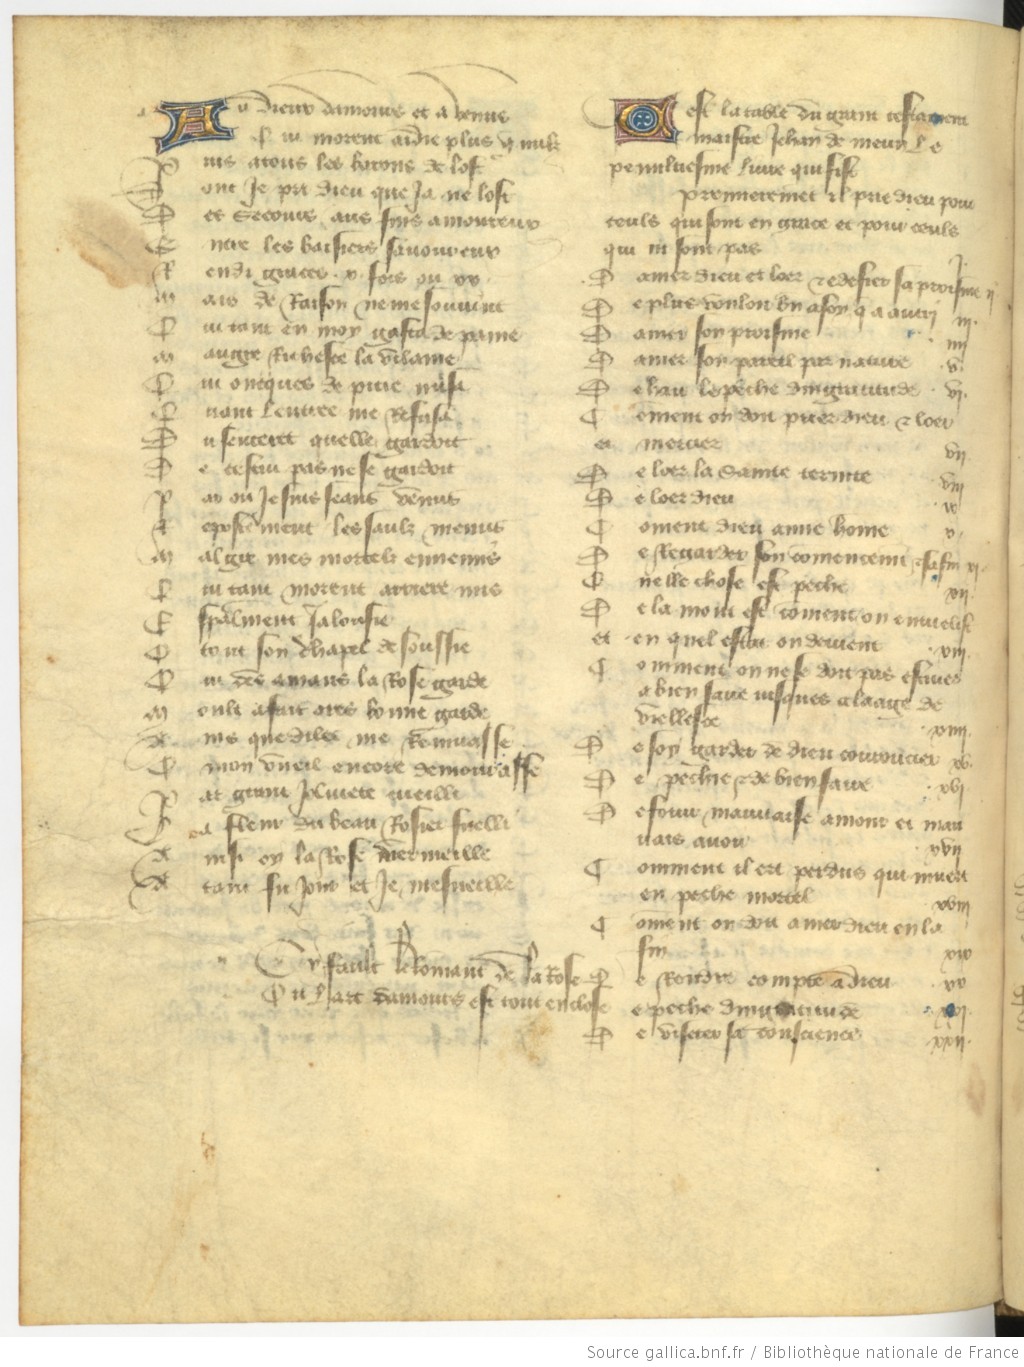 Au dieux damours et a venus
Qui morent aidie plus q nulz
Puis a tous les barons de lost
Dont Je pri dieu que Ja ne lost
Des Secours aus fins amoureux
Entre les baisiers savoureux
Rendi graces x fois ou xx
Mais de Raison ne me souvint
Qui tant en moy gasta de paine
Maugre Richesce la vilaine
Qui oncques de pitie nusa
Quant lentree me Refusa
Du senteret quelle gardoit
De cestui pas ne se gardoit
Par ou Je suis seans venus
Repostement les saulz menus
Malgre mes mortelz ennemis
Qui tant morent arriere mis
Especialment Jalousie
O tout son chapel de soussie
Qui des amans la Rose garde
Moult a fait ores bonne garde
Ains que dilec me Remuasse
Ou mon vueil encore demourasse
Par grant Joliuete cueilli
La fleur du beau Rosier fueilli
Ainsi oy la Rose vermeille
Atant fu Jour et Je mesueille
Cy fault le Romant de la Rose
Ou lart damours est tout enclose
Cest la table du grant testament
maistre Jehan de meun Le
penultiesme liure quil fist
Premierement il prie dieu pour
ceuls qui sont en grace et pour ceuls
qui ni sont pas j
Damer dieu et loer & edefier sa proisme ij
De plus voulour bn a soy q a autri iij
Damer son proisme iiij
Damer son pareil par nature v
De hair le peche dingratitude vi
Coment on doit prier dieu & loer
et mercier vij
De loer la Sainte ternite viij
De loer dieu ix
Coment dieu aime home x
De Regarder son comencemt & sa fin xi
Quelle chose est peche xij
De la mort est coment on enuelist
et en quel estat on deuient xiij
Comment on ne se doit pas esauer
a bien faire iusques a laage de
viellesce xiiij
De soy garder de dieu couroucier xv
De pechie & de bien faire xvi
De fouir mauuaise amour et mau
uais auoir xvij
Comment il est perdus qui muert
en peche mortel xviij
Coment on doit amer dieu en la
fin xix
De Rendre compte a dieu xx
De peche dingratitude xxi
De visiter sa conscience xxij
Source gallica.bnf.fr / Bibliothèque nationale de France